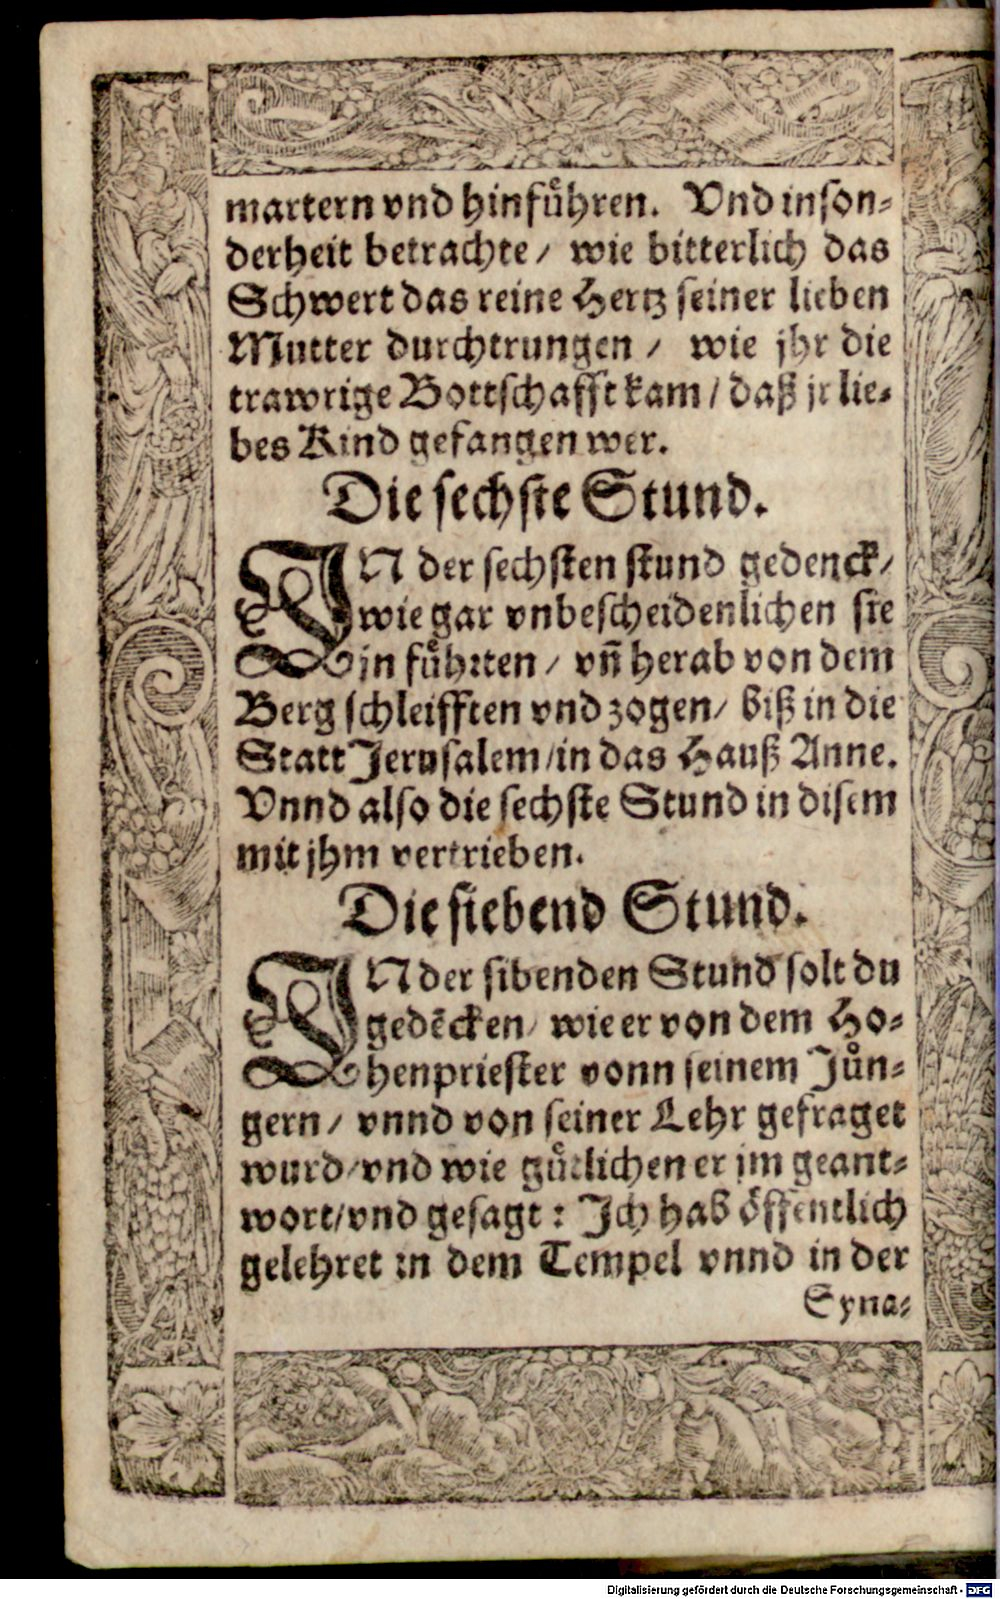 martern vnd hinfuͤhren. Vnd inson⸗
derheit betrachte / wie bitterlich das
Schwert das reine Hertz seiner lieben
Mutter durchtrungen / wie jhr die
trawrige Bottschafft kam / daß jr lie⸗
bes Kind gefangen wer.
Die sechste Stund.
IN der sechsten stund gedenck /
wie gar vnbescheidenlichen sie
jn fuͤhrten / vñ herab von dem
Berg schleifften vnd zogen / biß in die
Statt Jerusalem / in das Hauß Anne.
Vnnd also die sechste Stund in disem
mit jhm vertrieben.
Die siebend Stund.
IN der sibenden Stund solt du
gedẽcken / wie er von dem Ho⸗
henpriester vonn seinem Juͤn⸗
gern / vnnd von seiner Lehr gefraget
wurd / vnd wie guͤtlichen er jm geant⸗
wort / vnd gesagt : Ich hab oͤffentlich
gelehret in dem Tempel vnnd in der
Syna⸗
Digitalisierung gefördert durch die Deutsche Forschungsgemeinschaft - DFG